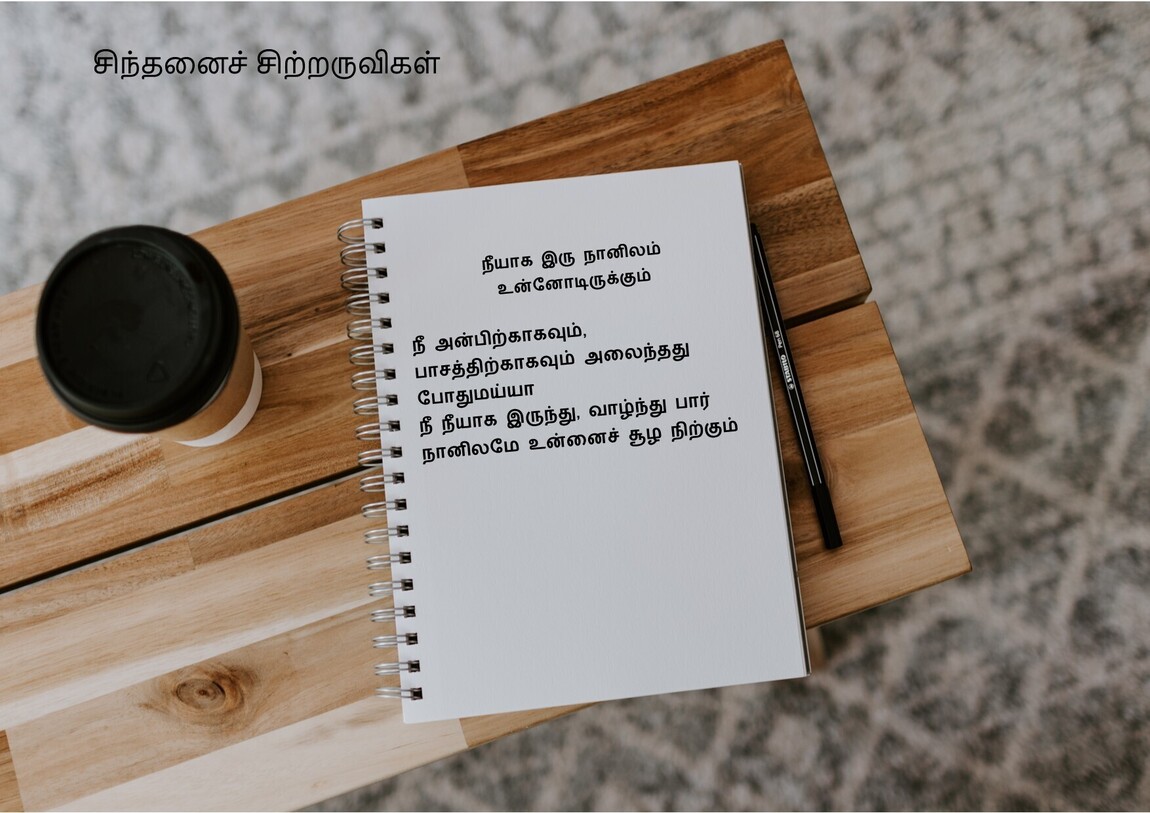 சிந்தனைச் சிற்றருவிகள்
நீயாக இரு நானிலம்
உன்னோடிருக்கும்
நீ அன்பிற்காகவும்,
பாசத்திற்காகவும் அலைந்தது
போதுமய்யா
நீ நீயாக இருந்து, வாழ்ந்து பார்
நானிலமே உன்னைச் சூழ நிற்கும்
STABILO